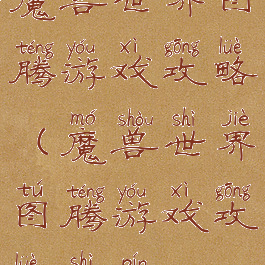 魔兽世界图
téng yóu xì gōng lüè
腾游戏攻略
mó shòu shì jiè
（魔兽世界
tú téng yóu xì gōng
图腾游戏攻
lüè shì pín